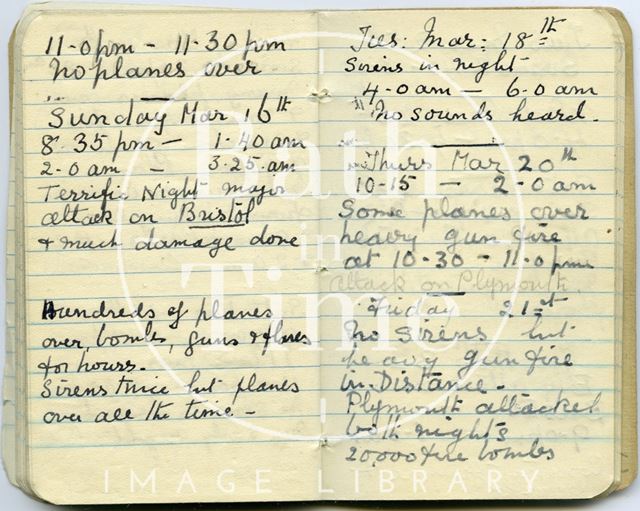 11.0pm - 11.30pm
No planes over
Sunday Mar 16th
8.35 pm - 1.40 am
2.0 am - 3.25. am
Terrific Night major
attack on Bristol
& much damage done
Hundreds of planes
over, bombs, guns & flares
for hours.
Sirens twice but planes
over all the time -
Tues: Mar: 18th
Sirens in night
4.0 am - 6.0 am
No sounds heard.
Thurs Mar 20th
10-15 - 2.0 am
Some planes over
heavy gun fire
at 10.30 - 11.0 pm.
attack on Plymouth.
Friday 21st
No Sirens but
heavy gun fire
in Distance.
Plymouth attacked
both nights
20,000 fire bombs
Bath
in
Time
IMAGE LIBRARY